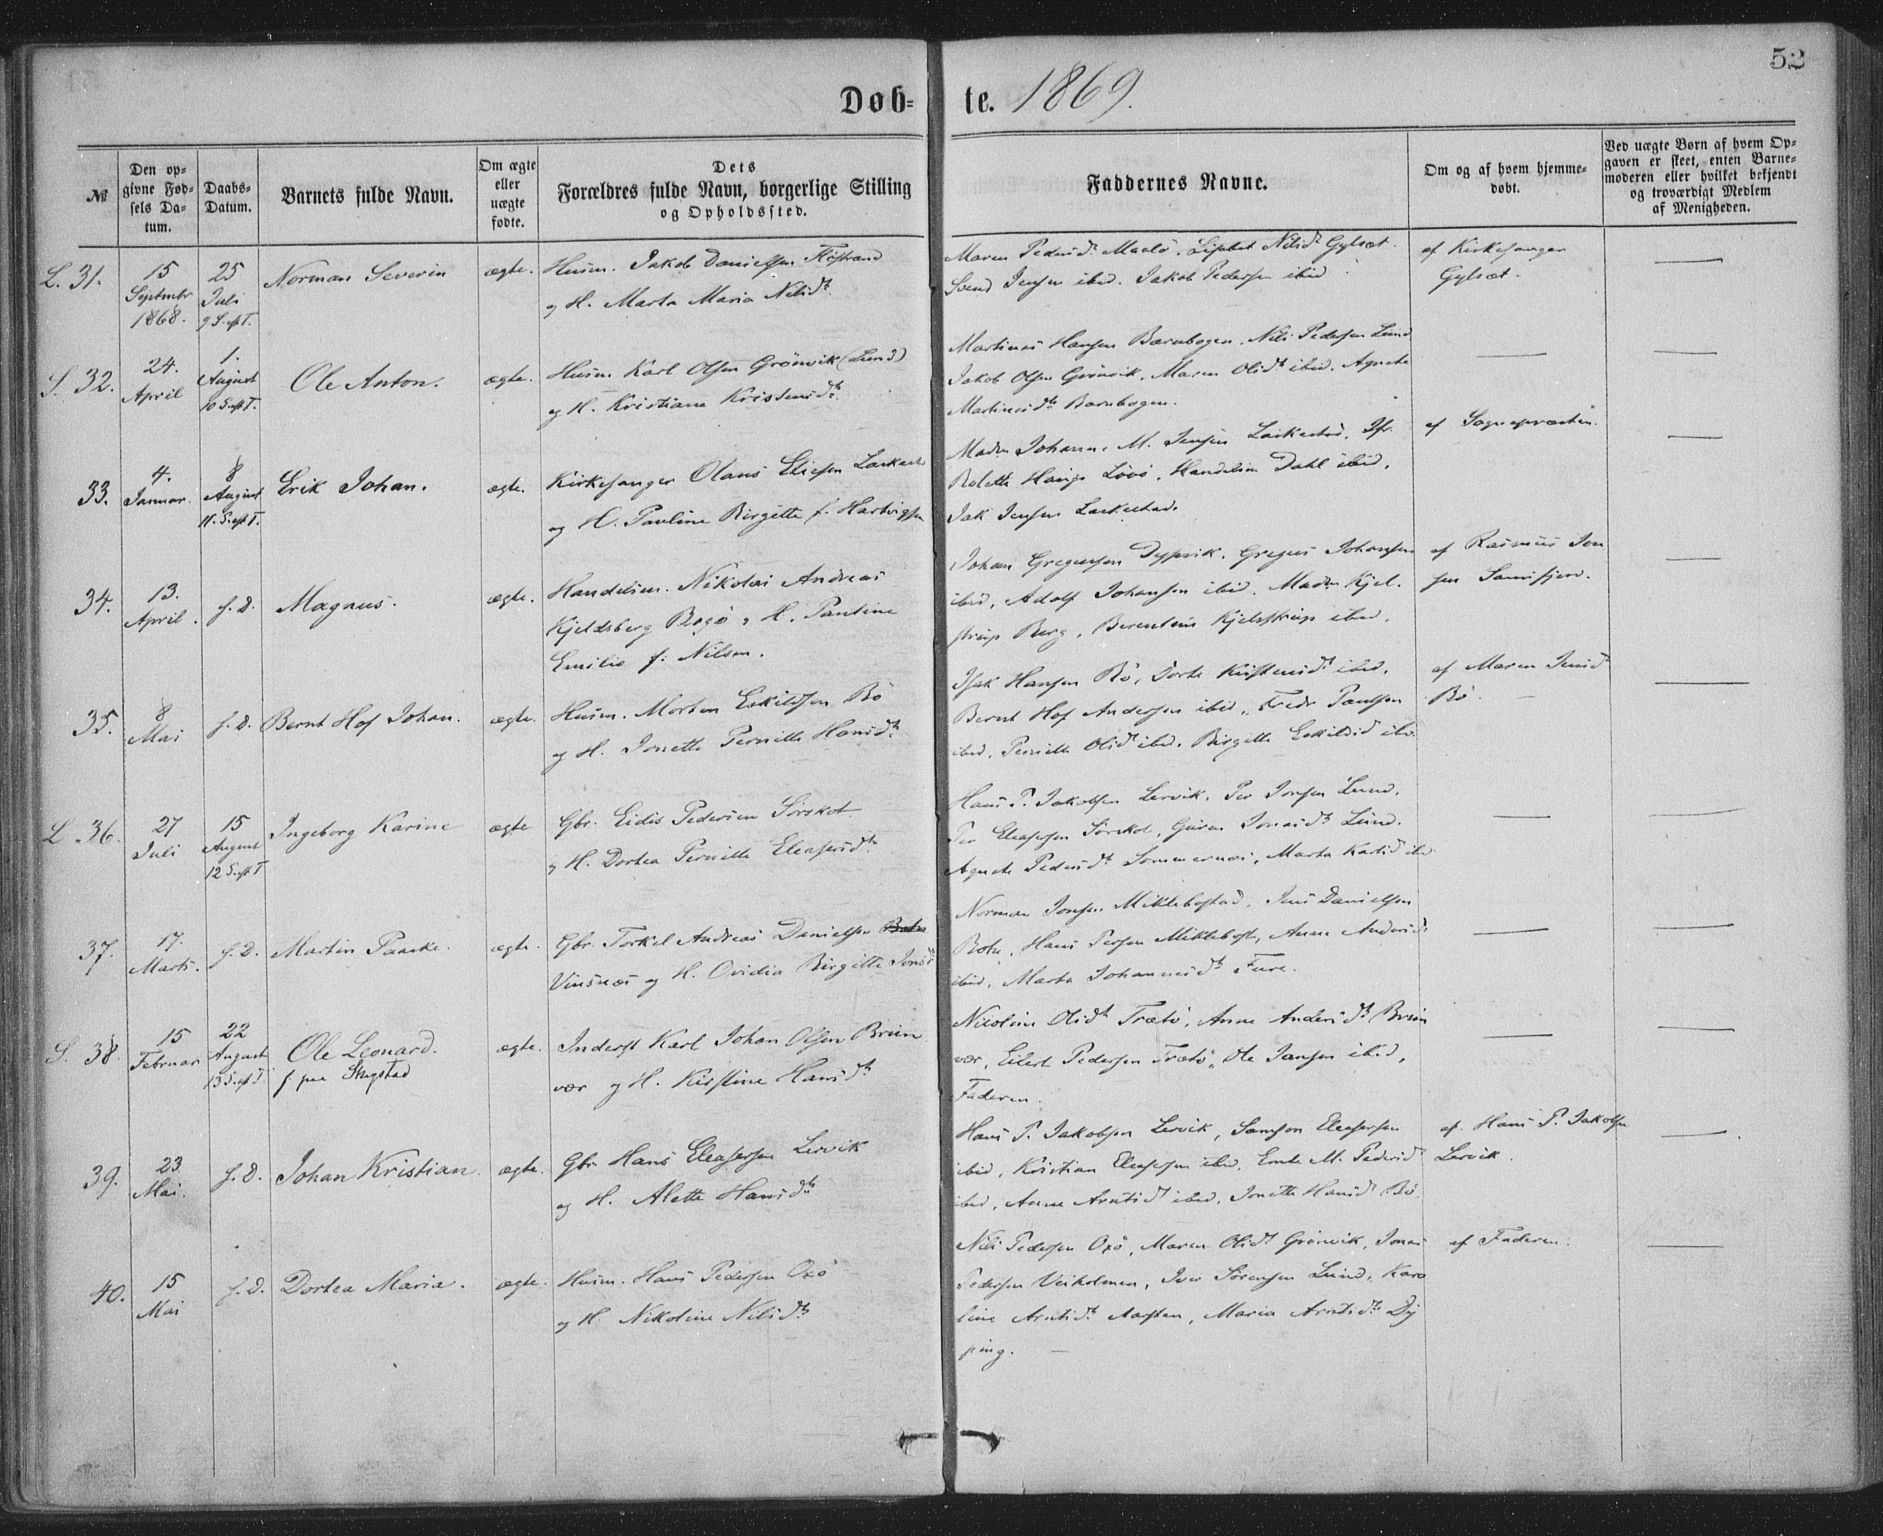 52
Døb- te. 1869.
№
Den op-
givne Fød-
sels Da-
tum.
Daabs-
Datum.
Barnets fulde Navn.
Om ægte
eller
uægte
fødte.
Dets
Forældres fulde Navn, borgerlige Stilling
og Opholdssted.
Faddernes Navne.
Om og af hvem hjemme-
døbt.
Ved uægte Børn af hvem Op-
gaven er skeet, enten Barne-
moderen eller hvilket bekjendt
og troværdigt Medlem
af Menigheden.
L. 31.
15
Septmbr
1868.
25
Juli
9 S. eft T.
Norman Severin
ægte.
Husm. Jakob Danielsen
og H. Marta Maria Nilsdt.
Maren Pedersdt Maalö, Lisbet Nilsdt Gylset.
Svend Jensen ibid. Jakob Pedersen ibid
af Kirkesanger
Gylset.
S. 32.
24.
April
1.
August
10 S. eft T.
Ole Anton.
ægte.
Husm. Karl Olsen Grönvik (Lund)
og H. Kristiane Kristensdt.
Martinus Hansen Barnbogen. Nils Pedersen Lund
Jakob Olsen Grönvik. Maren Olsdt ibid. Agnete
Martinusdt. Barnbogen.
33.
4.
Januar.
8
August
11. S. eft T.
Erik Johan.
ægte.
Kirkesanger Olaus Eliesen
og H. Pauline Birgitte f. Hartvigsen
Madm Johanna M. Jensen Laskestad, Jfr.
Bolette Lövö, Handelsm Dahl ibid.
Jak Jensen Laskestad.
af Sognepræsten.
34.
13.
April.
s. D.
Magnus.
ægte.
Handelsm. Nikolai Andreas
Kjeldsberg Bogö & H. Pauline
Emilie f: Nilsen.
Johan Gregusen Dypvik. Gregus Johansen
ibid, Adolf Johansen ibid. Madm Kjel.
strup Berg, Berentine Kjelstrup ibid.
af Rasmus Jen
sen
35.
8
Mai
s. D.
Bernt Hof Johan.
ægte.
Husm. Morten Eskildsen Bö
og H. Jonette Pernille Hansdt.
Isak Hansen Bö, Dorte Kristensdt ibid.
Bernt Hof Andersen ibid, Fredr Paulsen
ibid, Pernille Olsdt ibid. Birgitte Eskildsd ibid
af Maren Jensdt
Bö.
L 36.
27
Juli
15
August
12 S. eft T
Ingeborg Karine
ægte
Gbr. Eidis Pedersen Sörskot
og H. Dortea Pernille Eleasersdt.
Hans P. Jakobsen Lervik. Per Jonsen Lund.
Per Eleasersen Sörskot, Guren Jonasdt. Lund.
Agnete Pedersdt Sommernæs, Marta Karlsd ibid
37.
17.
Marts.
s. D.
Martin Paaske.
ægte.
Gbr. Torkil Andreas Danielsen
Vinsnæs og H. Ovidia Birgitte Jonsd
Norman Jonsen Miklebostad, Jens Danielsen
Botn, Hans Persen Miklebost, Anne Andersdt
ibid, Marta Johannesdt. Fure.
S. 38
15
Februar
22
August
13 S. eft T.
Ole Leonard.
f paa Skegstad
ægte.
Inderst Karl Johan Olsen Bruin
vær og H. Kirstine Hansdt
Nicoline Olsdt Trætö, Anne Andersdt. Bruin
vær, Eilert Pedersen Trætö, Ole Jansen ibid,
Faderen.
39.
23.
Mai.
s. D.
Johan Kristian.
ægte.
Gbr. Hans Eleasersen Lervik
og H. Alette Hansdt
Hans P. Jakobsen Lervik, Samson Eleasersen
ibid, Kristian Eleasersen ibid, M. Pedersdt
ibid, Anne Arntsdt ibid, Jonette Hansdt Bö.
af Hans P. Jakobsen
Lervik.
40.
15
Mai
s. D.
Dortea Maria.
ægte.
Husm. Hans Pedersen Oxö
og H. Nikoline Nilsdt
Nils Pedersen Oxö, Maren Olsdt Grönvik, Jonas
Pedersen Veiholmen, Iver Sörensen Lund, Karo
line Arntsdt. Aasten, Maria Arntsdt. Dy
ping.
af Faderen.